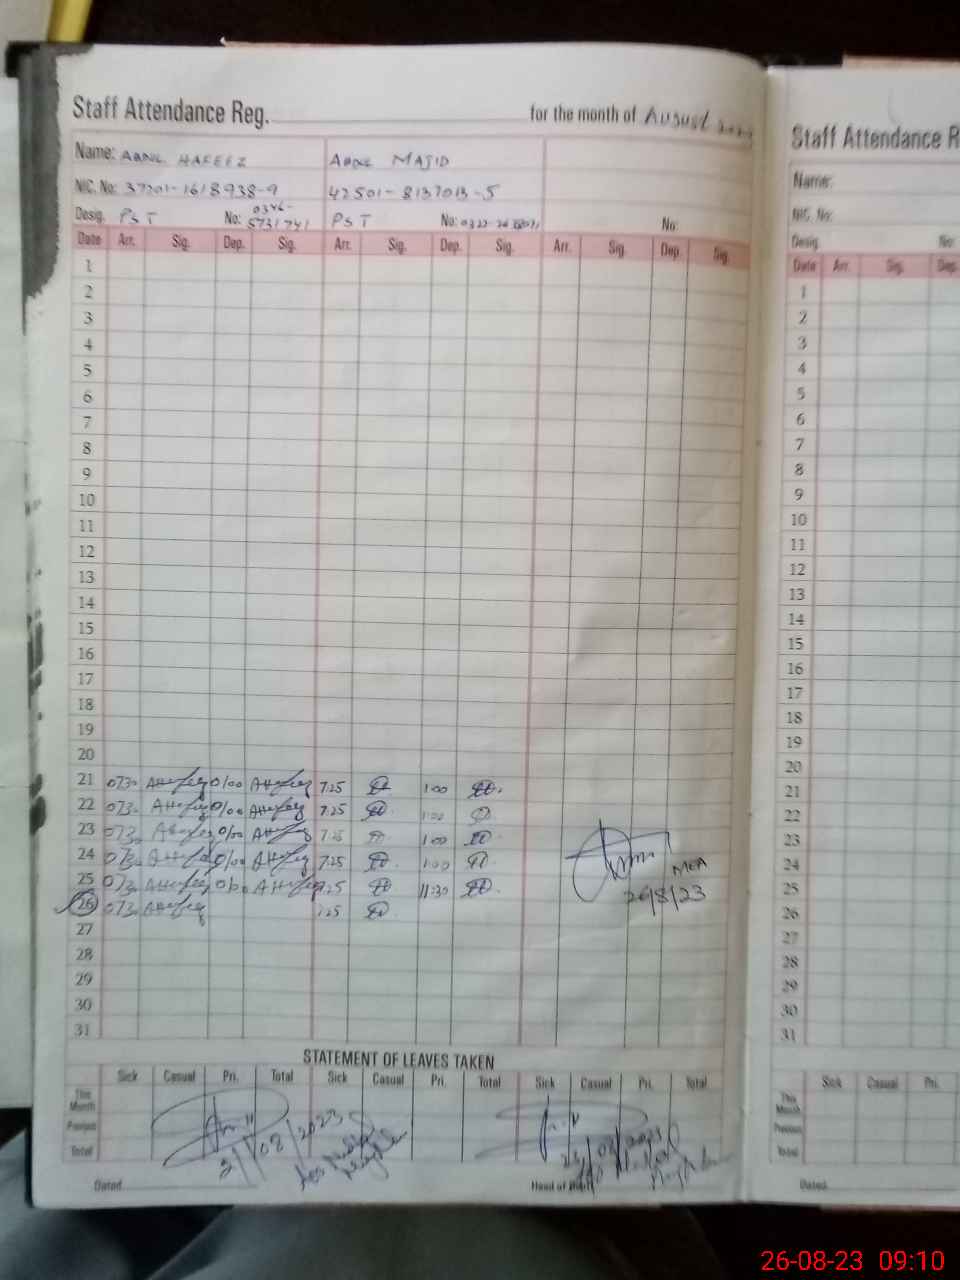 Staff Attendance Reg. for the month of August
Name: ABDUL HAFEEZ ABDUL MAJID
NIC. No: 37201-1618938-9 42501-8137013-5
Desig. PST No: 0346-5731741 PST No: 0322- No:
Date Arr. Sig. Dep. Sig. Arr. Sig. Dep. Sig. Arr. Sig. Dep. Sig.
1
2
3
4
5
6
7
8
9
10
11
12
13
14
15
16
17
18
19
20
21 0730 AHafeez 0/00 AHafeez 7.25 1.00
22 0730 AHafeez 0/00 AHafeez 7.25 1:00
23 0730 AHafeez 0/00 AHafeez 7.25 1.00
24 0730 AHafeez 0/00 AHafeez 7.25 1.00
25 0730 AHafeez AHafeez 7.25 11:30
26 0730 AHafeez 7.25
MEA
26/8/23
27
28
29
30
31
STATEMENT OF LEAVES TAKEN
Sick Casual Pri. Total Sick Casual Pri. Total Sick Casual Pri. Total
This Month
Previous
Total
08/2023
Dated Head of
Staff Attendance R
Name:
NIC. No:
Desig. No:
Date Arr. Sig. Dep.
1
2
3
4
5
6
7
8
9
10
11
12
13
14
15
16
17
18
19
20
21
22
23
24
25
26
27
28
29
30
31
Sick Casual Pri.
This Month
Previous
Total
Dated
26-08-23 09:10